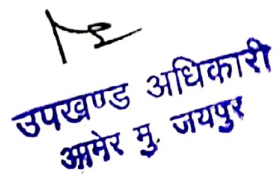 उपखण्ड अधिकारी
आमेर मु. जयपुर